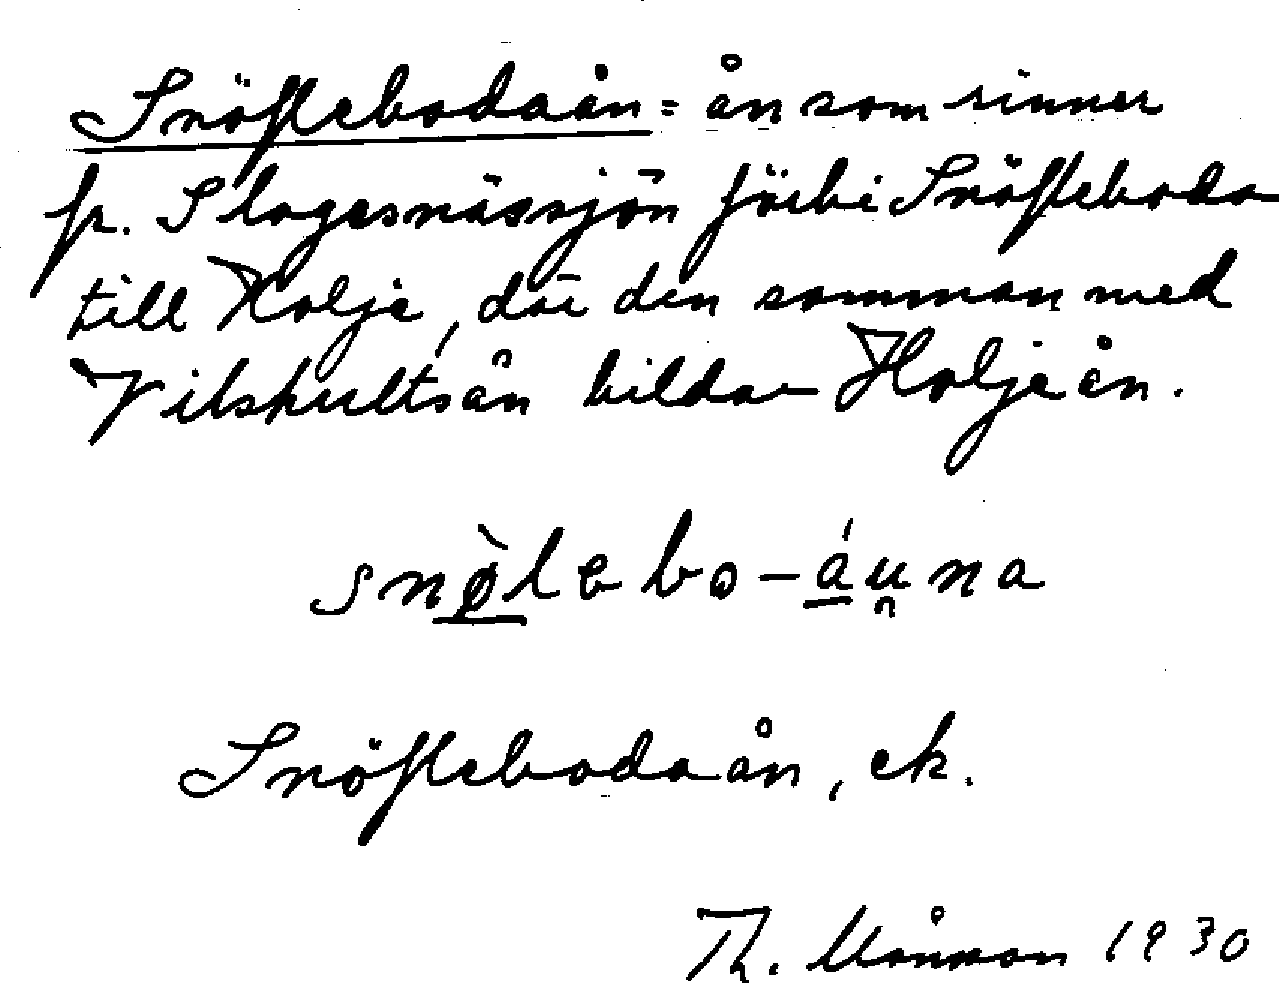 Snöflebodaån = ån som rinner
fr. Slagesnässjön förbi Snöfleboda
till Holje, där den samman med
Vilshultsån bildar Holjeån.
snø̀lebo-áu̯na
Snöflebodaån, ek.
Th. Månson 1930